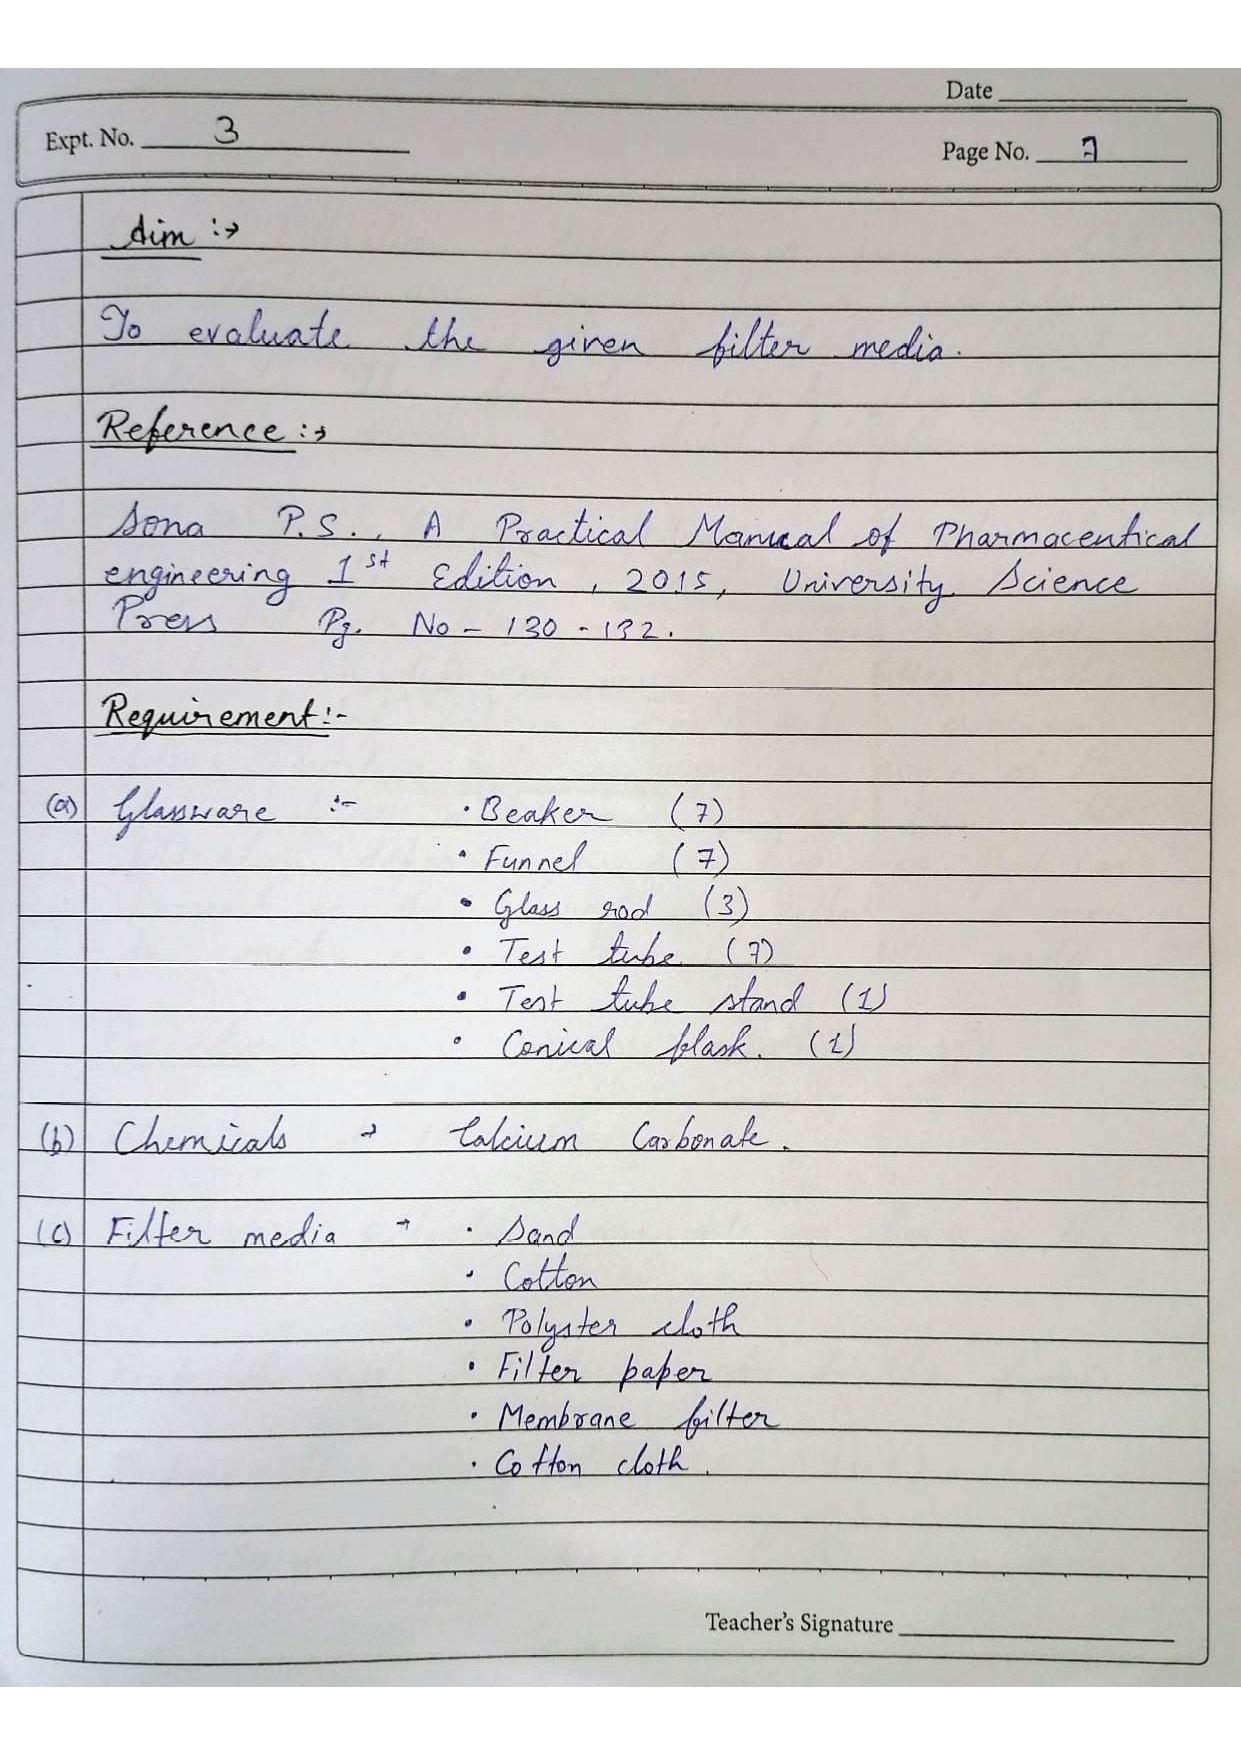 Date
Expt. No. 3
Page No. 7
Aim :→
To evaluate the given filter media.
Reference :→
Sona P.S., A Practical Manual of Pharmaceutical
engineering 1st Edition, 2015, University Science
Press Pg. No - 130 - 132.
Requirement:-
(a) Glassware :- • Beaker (7)
• Funnel (7)
• Glass rod (3)
• Test tube (7)
• Test tube stand (1)
• Conical flask. (1)
(b) Chemicals → Calcium Carbonate.
(c) Filter media → • Sand
• Cotton
• Polyster cloth
• Filter paper
• Membrane filter
• Cotton cloth.
Teacher's Signature